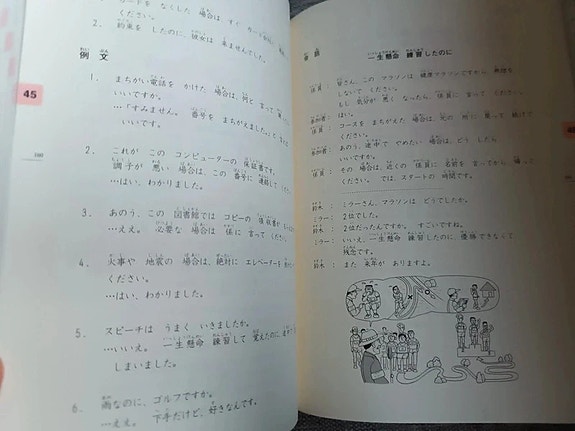 カードを なくした 場合は すぐ カード会社に
ください。
2. 約束を したのに、彼女は 来ませんでした。
例文
45
1. まちがい電話を かけた 場合は、何と 言って
いいですか。
…「すみません。 番号を まちがえました。」と
いいです。
2. これが この コンピューターの 保証書です。
調子が 悪い 場合は、この 番号に 連絡して
…はい、わかりました。
3. あのう、この 図書館では コピーの 領収書が
…ええ。 必要な 場合は 係に 言って ください。
4. 火事や 地震の 場合は、絶対に エレベーターを
ください。
…はい、わかりました。
5. スピーチは うまく いきましたか。
…いいえ。 一生懸命 練習して 覚えたのに、
しまいました。
6. 雨なのに、ゴルフですか。
…ええ。 下手だけど、好きなんです。
会話
一生懸命 練習したのに
係員: 皆さん、この マラソンは 健康マラソンですから、無理を
しないで ください。
もし 気分が 悪く なったら、係員に 言って ください。
参加者: はい。
係員: コースを まちがえた 場合は、元の 所に 戻って 続けて
ください。
参加者: あのう、途中で やめたい 場合は、どう したら
いいですか。
係員: その 場合は、近くの 係員に 名前を 言ってから、帰って
ください。 では、スタートの 時間です。
鈴木: ミラーさん、マラソンは どうでしたか。
ミラー: 2位でした。
鈴木: 2位だったんですか。 すごいですね。
ミラー: いいえ、一生懸命 練習したのに、優勝できなくて、
残念です。
鈴木: また 来年が ありますよ。